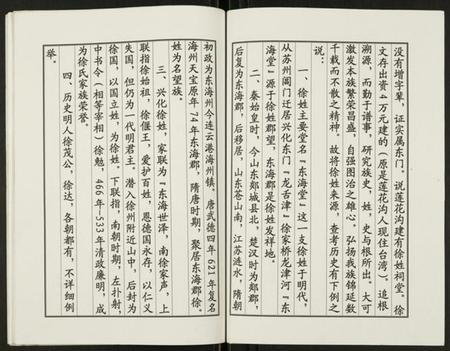 没有增字辈，证实属东门。说莲花沟建有徐姓祠堂。徐
文存出资4万元建的（原是莲花沟人现住台湾）。追根
溯源，而勤于谱事，研究族史，姓，史与根所出。大可
激发本族繁荣昌盛，自强图治之雄心。弘扬我族锦延数
千载而不散之精神，故将徐姓来源，查考历史有下例之
说：
一、徐姓主要堂名『东海堂』这一支徐姓于明代，
从苏州阊门迁居兴化东门『龙舌津』徐家桥龙津河『东
海堂』源于徐姓郡望，东海郡是徐姓发祥地。
二、秦始皇时，今山东郯城县北，楚汉时为郯郡，
后复为东海郡，后移居，山东苍山南，江苏涟水，隋朝
初政为东海州今连云港海州镇。唐武德四年621年复名
海州天宝原年74年东海郡，隋唐时期，聚居东海郡徐。
姓为名望族。
三、兴化徐姓，家联为『东海世泽，南徐家声，上
联指徐始祖，徐偃王，爱护百姓，恩德国永存，以仁义
失国，但仍为一代明君主。潜入徐州附近山中，后封为
徐国，以国立姓，为徐姓。下联指，南朝时期，左扑射，
中书令（相等宰相）徐勉，466年-533年清政廉明，成
为徐氏家族荣誉。
四、历史明人徐茂公，徐达，各朝都有，不详细例
举。